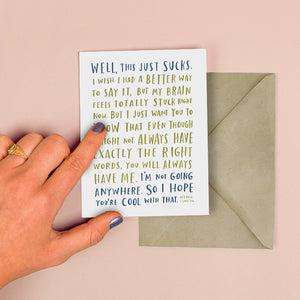 WELL, THIS JUST SUCKS.
I WISH I HAD A BETTER WAY
TO SAY IT, BUT MY BRAIN
FEELS TOTALLY STUCK RIGHT
NOW. BUT I JUST WANT YOU TO
THAT EVEN THOUGH
NOT ALWAYS HAVE
EXACTLY THE RIGHT
WORDS, YOU WILL ALWAYS
HAVE ME. I'M NOT GOING
ANYWHERE. SO I HOPE
YOU'RE COOL WITH THAT.